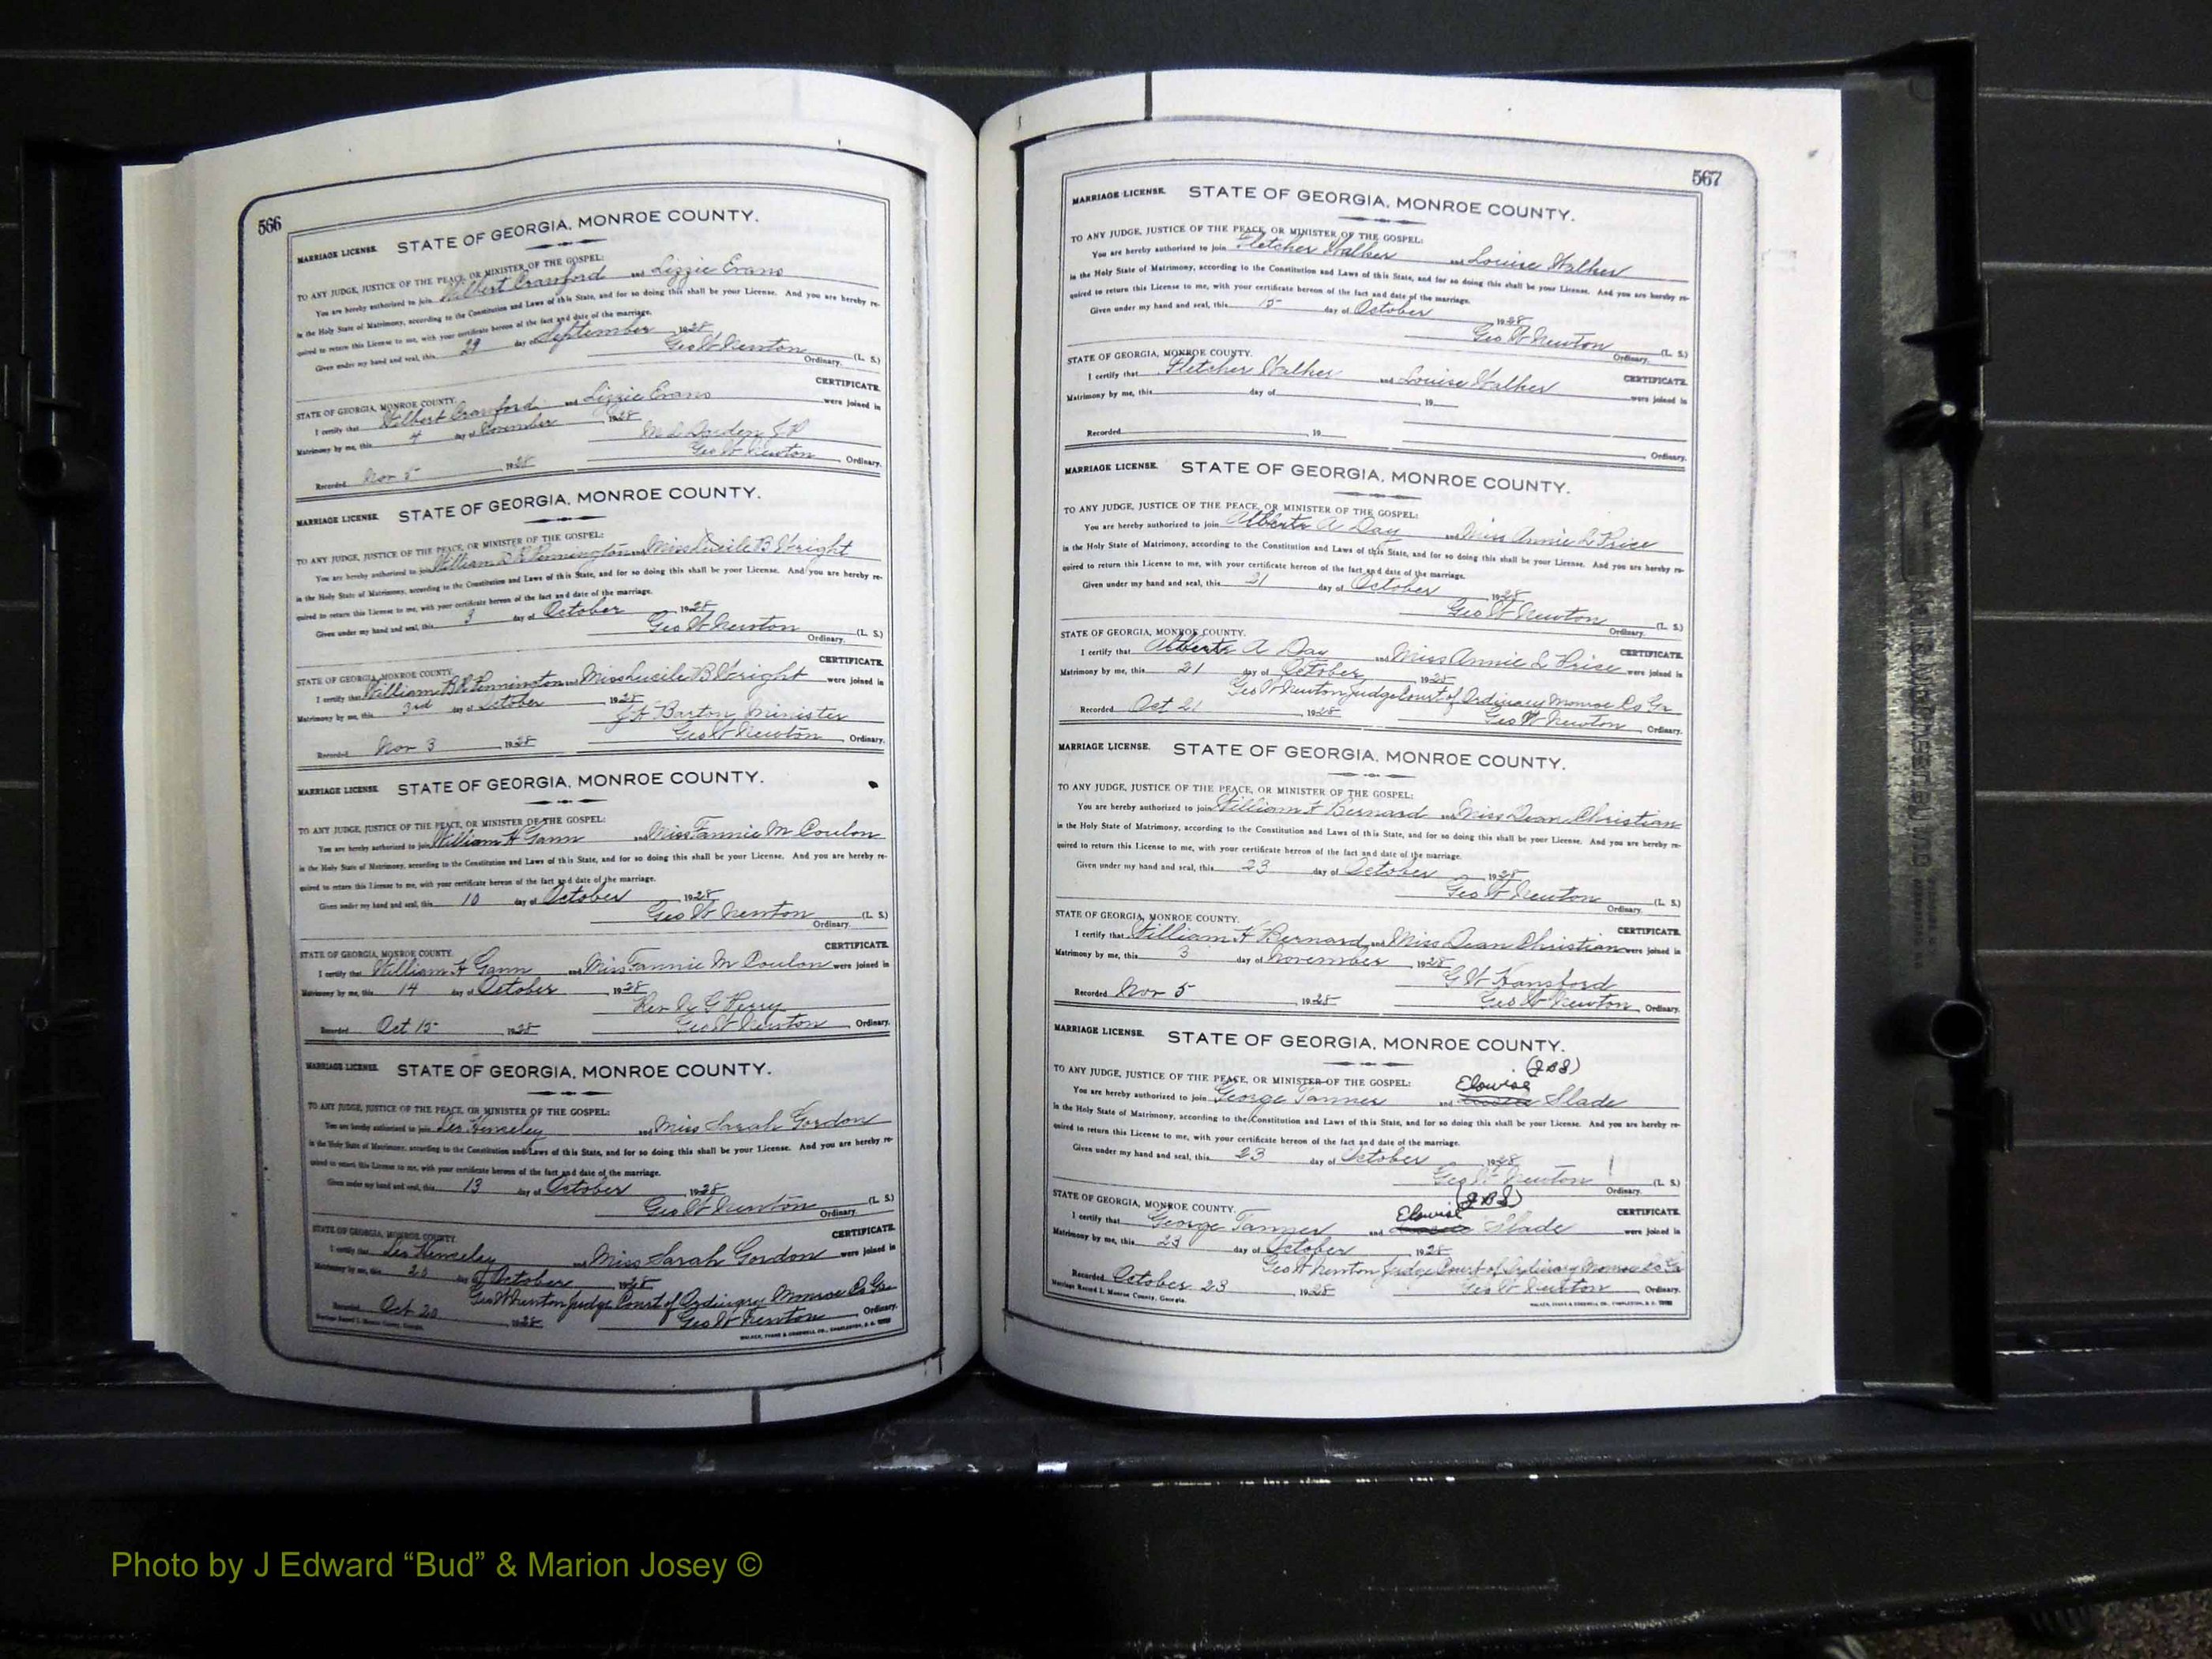 566
MARRIAGE LICENSE. STATE OF GEORGIA, MONROE COUNTY.
TO ANY JUDGE, JUSTICE OF THE PEACE, OR MINISTER OF THE GOSPEL:
You are hereby authorized to join Wilbert Crawford and Lizzie Evans
in the Holy State of Matrimony, according to the Constitution and Laws of this State, and for so doing this shall be your License. And you are hereby re-
quired to return this License to me, with your certificate hereon of the fact and date of the marriage.
Given under my hand and seal, this 29 day of September 1928
Geo W Newton (L. S.)
Ordinary.
CERTIFICATE.
STATE OF GEORGIA, MONROE COUNTY.
I certify that Wilbert Crawford and Lizzie Evans were joined in
Matrimony by me, this 4 day of November, 1928
J P
Recorded Nov 5 1928 Geo W Newton, Ordinary.
MARRIAGE LICENSE. STATE OF GEORGIA, MONROE COUNTY.
TO ANY JUDGE, JUSTICE OF THE PEACE, OR MINISTER OF THE GOSPEL:
You are hereby authorized to join William Pennington and Miss Lucile B Wright
in the Holy State of Matrimony, according to the Constitution and Laws of this State, and for so doing this shall be your License. And you are hereby re-
quired to return this License to me, with your certificate hereon of the fact and date of the marriage.
Given under my hand and seal, this 3 day of October, 1928
Geo W Newton (L. S.)
Ordinary.
CERTIFICATE.
STATE OF GEORGIA, MONROE COUNTY.
I certify that William Pennington and Miss Lucile B Wright were joined in
Matrimony by me, this 3rd day of October, 1928
Barton, Minister
Recorded Nov 3, 1928 Geo W Newton, Ordinary.
MARRIAGE LICENSE. STATE OF GEORGIA, MONROE COUNTY.
TO ANY JUDGE, JUSTICE OF THE PEACE, OR MINISTER OF THE GOSPEL:
You are hereby authorized to join William H Gann and Miss Fannie M Coulon
in the Holy State of Matrimony, according to the Constitution and Laws of this State, and for so doing this shall be your License. And you are hereby re-
quired to return this License to me, with your certificate hereon of the fact and date of the marriage.
Given under my hand and seal, this 10 day of October, 1928
Geo W Newton (L. S.)
Ordinary.
CERTIFICATE.
STATE OF GEORGIA, MONROE COUNTY.
I certify that William H Gann and Miss Fannie M Coulon were joined in
Matrimony by me, this 14 day of October, 1928
Rev Perry
Recorded Oct 15, 1928 Geo W Newton, Ordinary.
MARRIAGE LICENSE. STATE OF GEORGIA, MONROE COUNTY.
TO ANY JUDGE, JUSTICE OF THE PEACE, OR MINISTER OF THE GOSPEL:
You are hereby authorized to join Les Henseley and Miss Sarah Gordon
in the Holy State of Matrimony, according to the Constitution and Laws of this State, and for so doing this shall be your License. And you are hereby re-
quired to return this License to me, with your certificate hereon of the fact and date of the marriage.
Given under my hand and seal, this 13 day of October, 1928
Geo W Newton (L. S.)
Ordinary.
CERTIFICATE.
STATE OF GEORGIA, MONROE COUNTY.
I certify that Les Henseley and Miss Sarah Gordon were joined in
Matrimony by me, this 20 day of October 1928
Geo W Newton Judge Court of Ordinary Monroe Co Ga
Recorded Oct 20 1928 Geo W Newton, Ordinary.
Marriage Record I. Monroe County, Georgia. WALKER, EVANS & COGSWELL CO., CHARLESTON, S. C.
567
MARRIAGE LICENSE. STATE OF GEORGIA, MONROE COUNTY.
TO ANY JUDGE, JUSTICE OF THE PEACE, OR MINISTER OF THE GOSPEL:
You are hereby authorized to join Fletcher Walker and Louise Walker
in the Holy State of Matrimony, according to the Constitution and Laws of this State, and for so doing this shall be your License. And you are hereby re-
quired to return this License to me, with your certificate hereon of the fact and date of the marriage.
Given under my hand and seal, this 15 day of October 1928
Geo W Newton (L. S.)
Ordinary.
STATE OF GEORGIA, MONROE COUNTY. CERTIFICATE.
I certify that Fletcher Walker and Louise Walker were joined in
Matrimony by me, this day of , 19
Recorded , 19
Ordinary.
MARRIAGE LICENSE. STATE OF GEORGIA, MONROE COUNTY.
TO ANY JUDGE, JUSTICE OF THE PEACE, OR MINISTER OF THE GOSPEL:
You are hereby authorized to join Alberta A Day and Miss Annie L Price
in the Holy State of Matrimony, according to the Constitution and Laws of this State, and for so doing this shall be your License. And you are hereby re-
quired to return this License to me, with your certificate hereon of the fact and date of the marriage.
Given under my hand and seal, this 21 day of October 1928
Geo W Newton (L. S.)
Ordinary.
STATE OF GEORGIA, MONROE COUNTY. CERTIFICATE.
I certify that Alberta A Day and Miss Annie L Price were joined in
Matrimony by me, this 21 day of October, 1928
Geo W Newton Judge Court of Ordinary Monroe Co Ga
Recorded Oct 21, 1928 Geo W Newton, Ordinary.
MARRIAGE LICENSE. STATE OF GEORGIA, MONROE COUNTY.
TO ANY JUDGE, JUSTICE OF THE PEACE, OR MINISTER OF THE GOSPEL:
You are hereby authorized to join William F Bernard and Miss Dean Christian
in the Holy State of Matrimony, according to the Constitution and Laws of this State, and for so doing this shall be your License. And you are hereby re-
quired to return this License to me, with your certificate hereon of the fact and date of the marriage.
Given under my hand and seal, this 23 day of October, 1928
Geo W Newton (L. S.)
Ordinary.
STATE OF GEORGIA, MONROE COUNTY. CERTIFICATE.
I certify that William F Bernard and Miss Dean Christian were joined in
Matrimony by me, this 3 day of November, 1928
G W Hansford
Recorded Nov 5, 1928 Geo W Newton, Ordinary.
MARRIAGE LICENSE. STATE OF GEORGIA, MONROE COUNTY.
TO ANY JUDGE, JUSTICE OF THE PEACE, OR MINISTER OF THE GOSPEL:
Elowise
You are hereby authorized to join George Tanner and Slade
in the Holy State of Matrimony, according to the Constitution and Laws of this State, and for so doing this shall be your License. And you are hereby re-
quired to return this License to me, with your certificate hereon of the fact and date of the marriage.
Given under my hand and seal, this 23 day of October 1928
Geo W Newton (L. S.)
Ordinary.
STATE OF GEORGIA, MONROE COUNTY. Elowise CERTIFICATE.
I certify that George Tanner and Slade were joined in
Matrimony by me, this 23 day of October, 1928
Geo W Newton Judge Court of Ordinary Monroe Co Ga
Recorded October 23 1928 Geo W Newton, Ordinary.
Marriage Record I. Monroe County, Georgia. WALKER, EVANS & COGSWELL CO., CHARLESTON, S. C.
Photo by J Edward “Bud” & Marion Josey ©